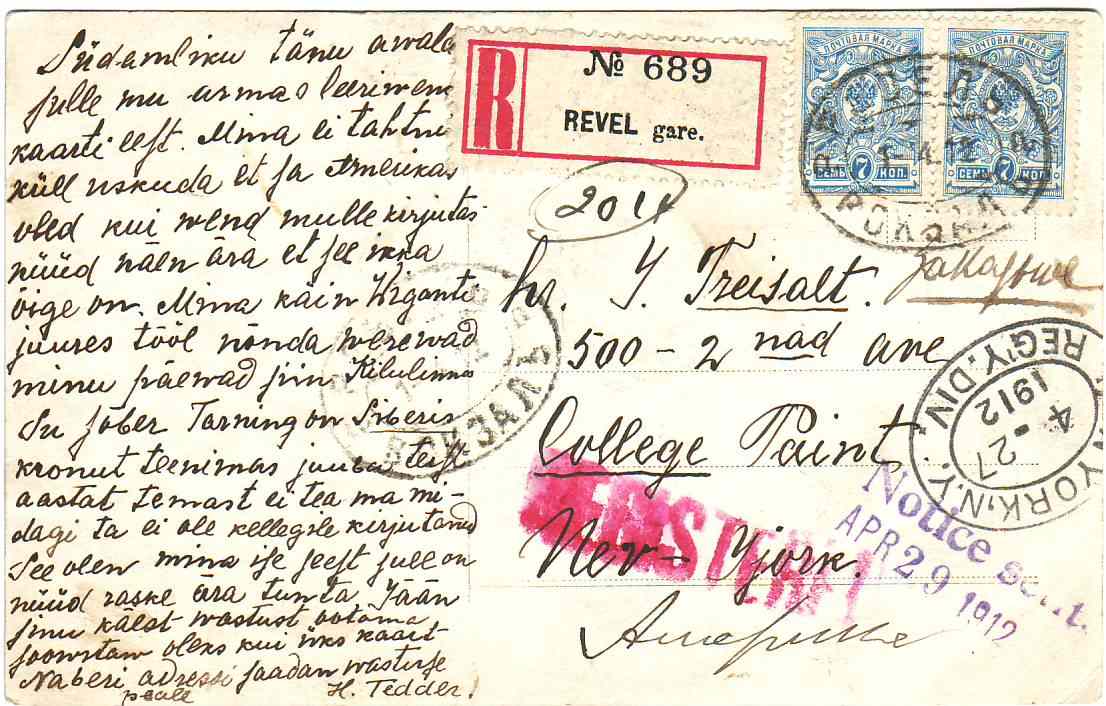 Südamliku tänu awala
sulle mu armas leeriwenn
kaarti eest. Mina ei tahtni
küll uskuda et sa Amerikas
oled kui wend mulle kirjutas
nüüd näen ära et see ikka
õige on. Mina käin Wiganti
juures tööl nõnda werewad
minu päewad siin Kilulinnas
Su sõber Tarning on Siberis
kronut teenimas juure teist
aastat temast ei tea ma mi-
dagi ta ei ole kellegile kirjutanud
See olen mina ise seest sull on
nüüd raske ära tunta Jään
sinu käest wastust ootama
soowitaw oleks kui üks kaart
Naberi adressi saadan wasturse
peale H. Tedder.
R
№ 689
REVEL gare.
ПОЧТОВАЯ МАРКА
7
СЕМЬ КОП.
ПОЧТОВАЯ МАРКА
7
СЕМЬ КОП.
РЕВЕЛЬ
ВОКЗАЛЪ
2014
hr. J. Treisalt.
заказное
500 - 2 nad ave
College Paint.
Nev - Yjork.
Америка
ВОКЗАЛЪ
REGISTERED
YORK, N.Y.
REG'Y. DIV.
4-27
1912
Notice sent.
APR 29 1912